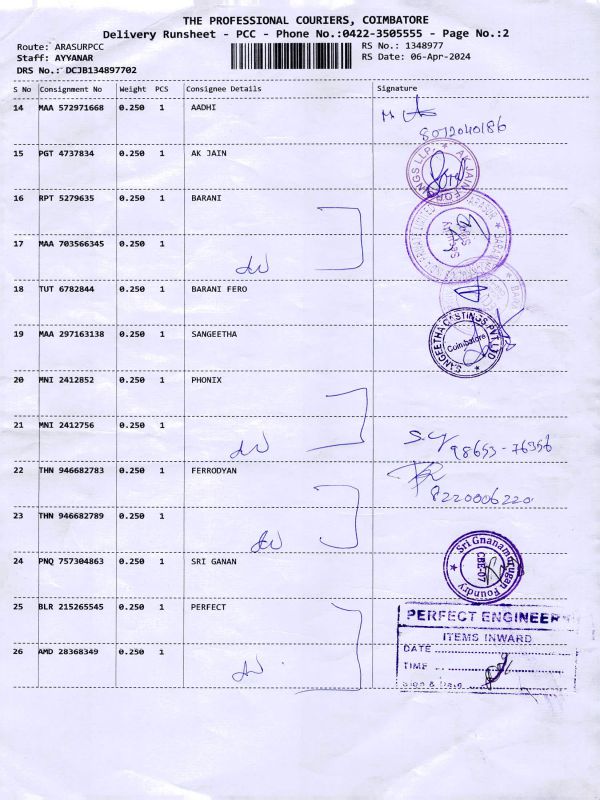 THE PROFESSIONAL COURIERS, COIMBATORE
Delivery Runsheet - PCC - Phone No.:0422-3505555 - Page No.:2
Route: ARASURPCC RS No.: 1348977
Staff: AYYANAR RS Date: 06-Apr-2024
DRS No.: DCJB134897702
S No Consignment No Weight PCS Consignee Details Signature
14 MAA 572971668 0.250 1 AADHI
8072040186
15 PGT 4737834 0.250 1 AK JAIN
AK JAIN FORGINGS LLP.
16 RPT 5279635 0.250 1 BARANI
17 MAA 703566345 0.250 1
18 TUT 6782844 0.250 1 BARANI FERO
19 MAA 297163138 0.250 1 SANGEETHA
SANGEETHA CASTINGS PVT. LTD
Coimbatore
20 MNI 2412852 0.250 1 PHONIX
21 MNI 2412756 0.250 1
98653-76356
22 THN 946682783 0.250 1 FERRODYAN
8220006220
23 THN 946682789 0.250 1
24 PNQ 757304863 0.250 1 SRI GANAN
Sri Gnanamurugan Foundry
CBE-07
25 BLR 215265545 0.250 1 PERFECT
PERFECT ENGINEER
ITEMS INWARD
26 AMD 28368349 0.250 1
DATE
TIME
Sign & Date